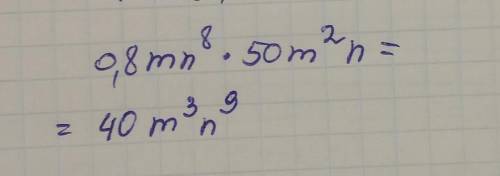 0,8mn⁸ · 50m²n =
= 40 m³n⁹